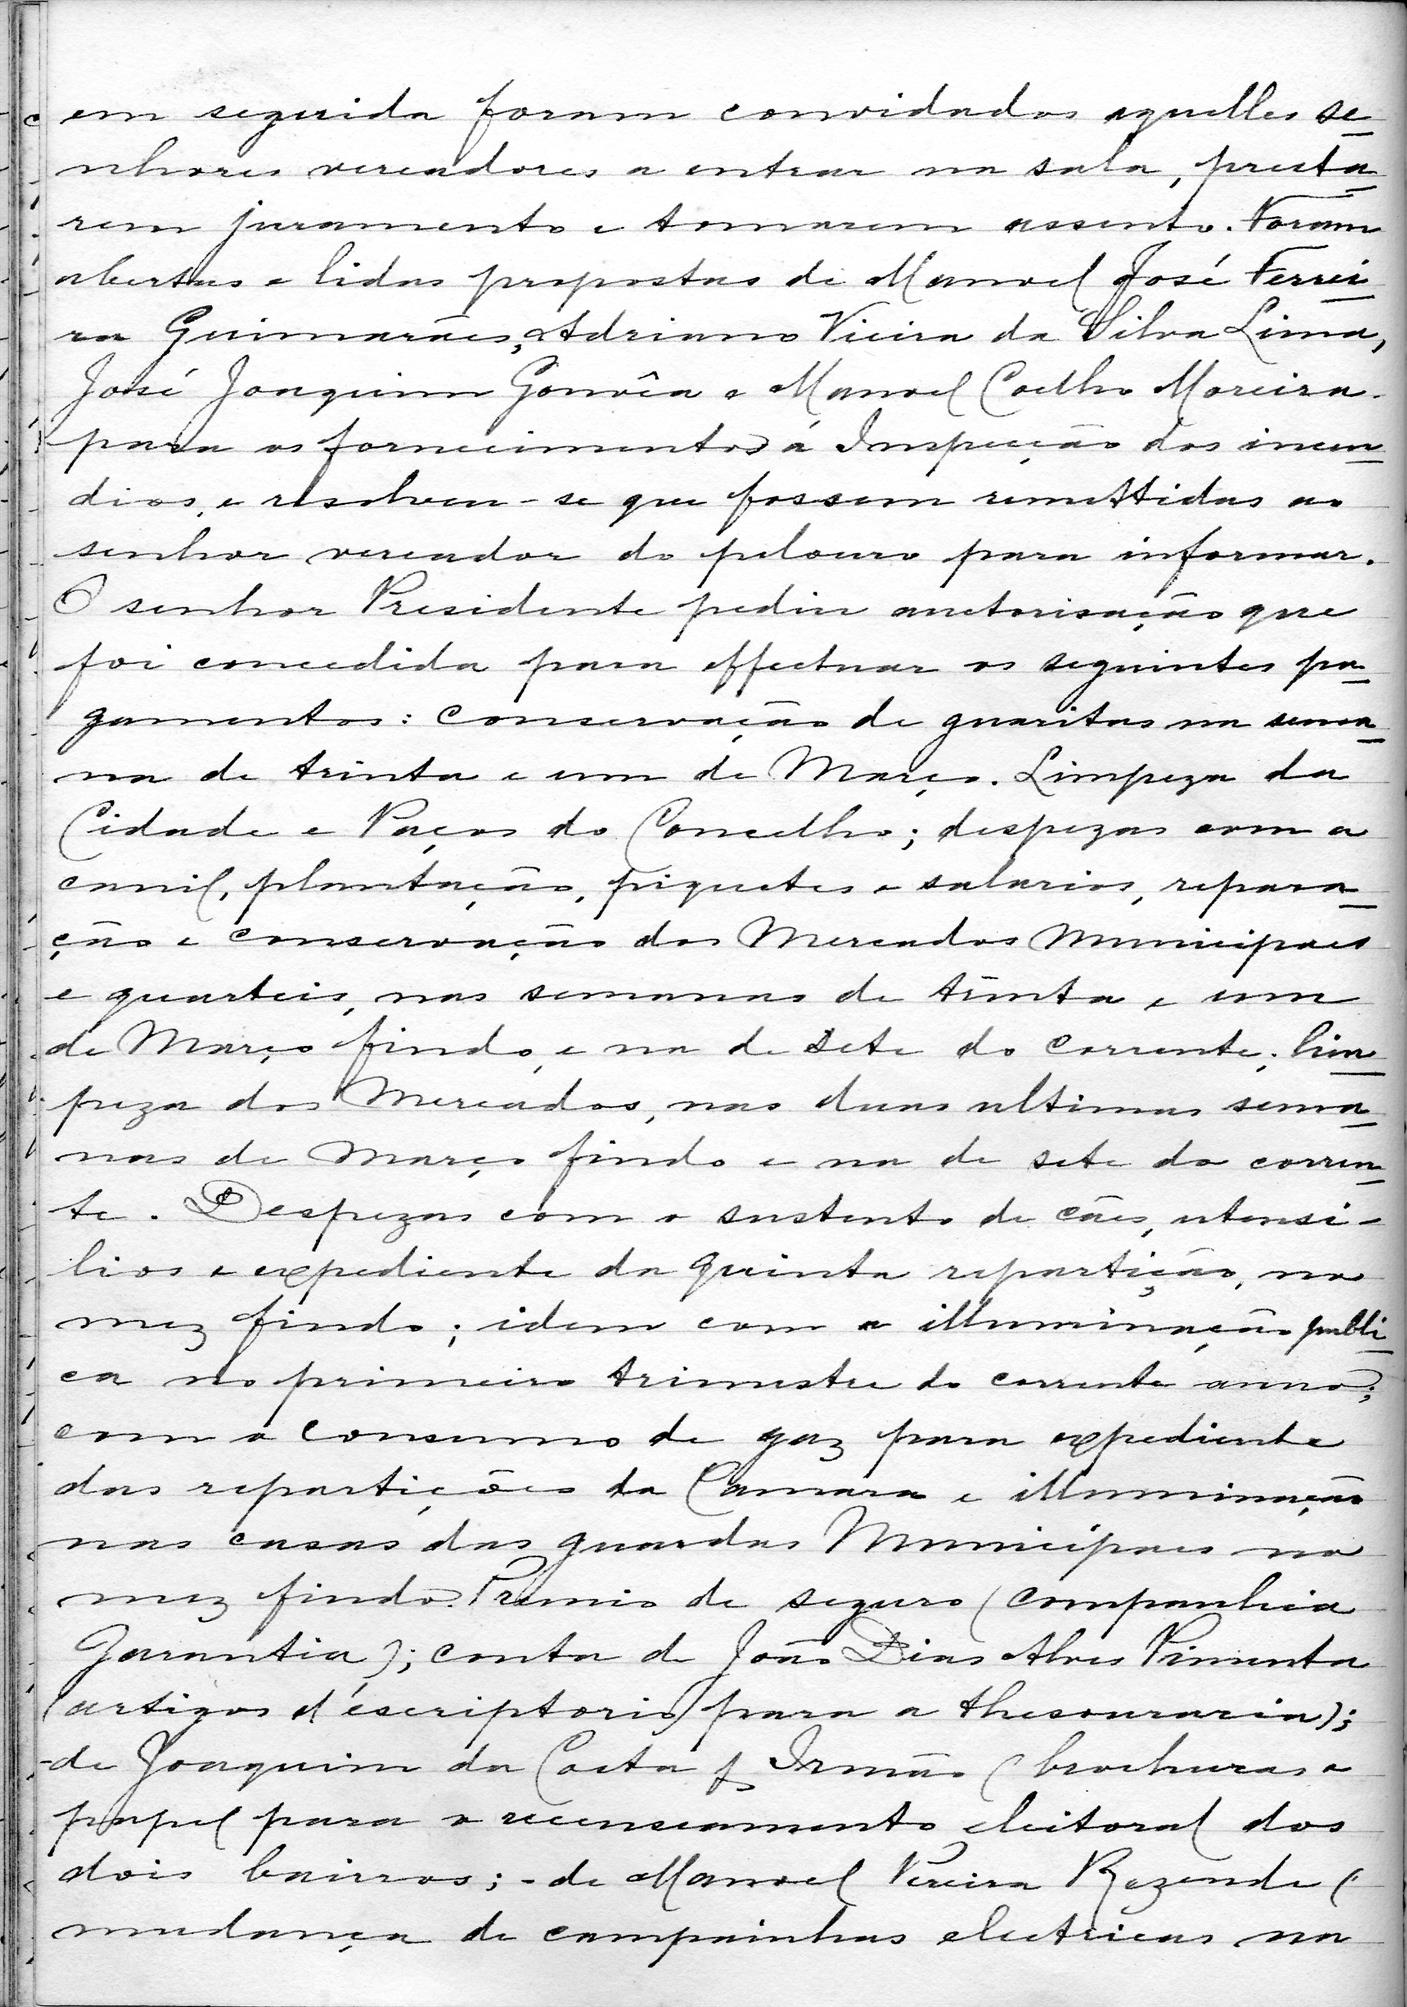 em seguida foram convidados aquelles se-
nhores vereadores a entrar na sala, presta-
rem juramento e tomarem assento. Foram
abertas e lidas propostas de Manoel José Ferrei-
ra Guimarães, Adriano Vieira da Silva Lima,
José Joaquim Gouvêa e Manoel Coelho Moreira
para os fornecimentos á Inspecção dos incen-
dios, e resolveu-se que fossem remettidas ao
senhor vereador do pelouro para informar.
O senhor Presidente pediu auctorisação que
foi concedida para effectuar os seguintes pa-
gamentos: conservação de guaritas na sema-
na de trinta e um de Março. Limpeza da
Cidade e Paços do Concelho; despezas com o
canil, plantação, piquetes e salarios, repara-
ção e conservação dos Mercados Municipaes
e quarteis, nas semanas de trinta e um
de Março findo, e na de sete do corrente; lim-
peza dos Mercados, nas duas ultimas sema-
nas de Março findo e na de sete do corren-
te. Despezas com o sustento de cães, utensi-
lios e expediente da quinta repartição, no
mez findo; idem com a illuminação publi-
ca no primeiro trimestre do corrente anno;
com o consumo de gaz para expediente
das repartições da Camara e illuminação
nas casas das guardas Municipaes no
mez findo. Premio de seguro (companhia
Garantia); conta de João Dias Alves Pimenta
(artigos d'escriptorio para a thesouraria);
-de Joaquim da Costa & Irmão (brochuras e
papel para o recenseamento eleitoral dos
dois bairros; -de Manoel Pereira Rezende (
mudança de campainhas electricas na